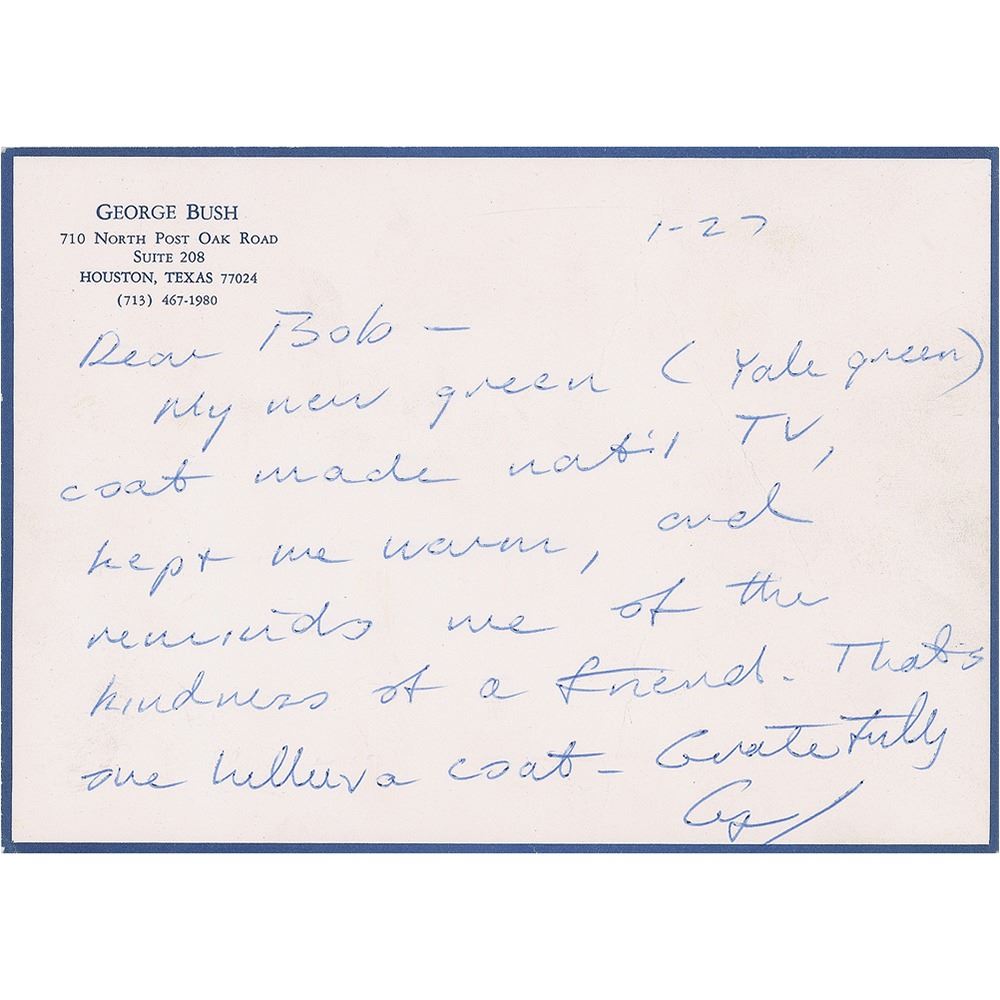 GEORGE BUSH
710 NORTH POST OAK ROAD
SUITE 208
HOUSTON, TEXAS 77024
(713) 467-1980
1-27
Dear Bob -
My new green (Yale green)
coat made nat'l TV,
kept me warm, and
reminds me of the
kindness of a friend. That's
one helluva coat - Gratefully
GB